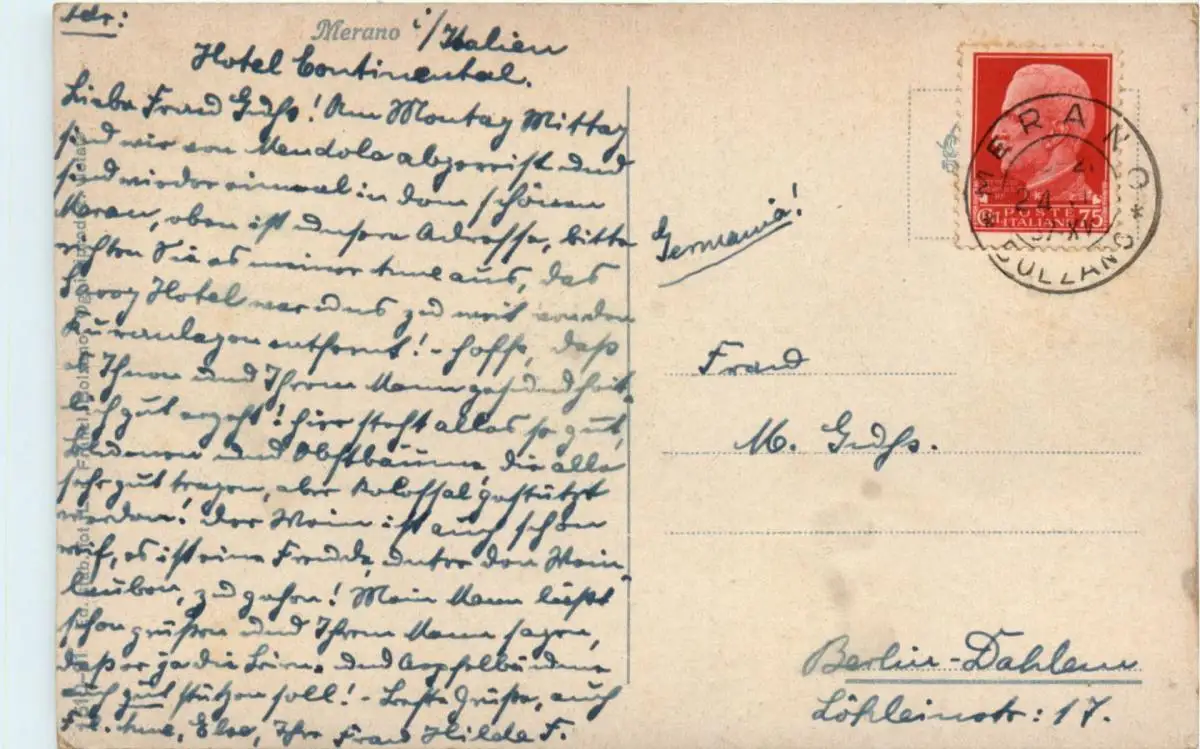 Adr:
Merano i/Italien
Hotel Continental.
Liebe Frau Guchs! Am Montag Mittag
sind wir von Mendola abgereist und
sind wieder einmal in dem schönen
Meran, oben ist unsere Adresse, bitte
richten Sie es meiner aus, das
Savoy Hotel war uns zu weit von den
Kuranlagen entfernt! - Hoffe, daß
es Ihnen und Ihrem Mann gesundheit-
lich gut ergeht! hier steht alles so gut,
und Obstbäume, die alle
sehr gut tragen, aber kolossal gestützt
werden! Der Wein ist auch schon
reif, es ist eine Freude, unter den Wein-
lauben, zu gehen! Mein Mann läßt
schön grüßen und Ihrem Mann sagen,
daß er ja die Birn- und Aepfelbäume
auch gut stützen soll! - Beste Grüße, auch
Frl. Else, Ihre Frau Hilde F.
Germania!
MERANO
24
BOLZANO
POSTE ITALIANE
75
Frau
M. Guchs.
Berlin-Dahlem
Löhleinstr: 17.